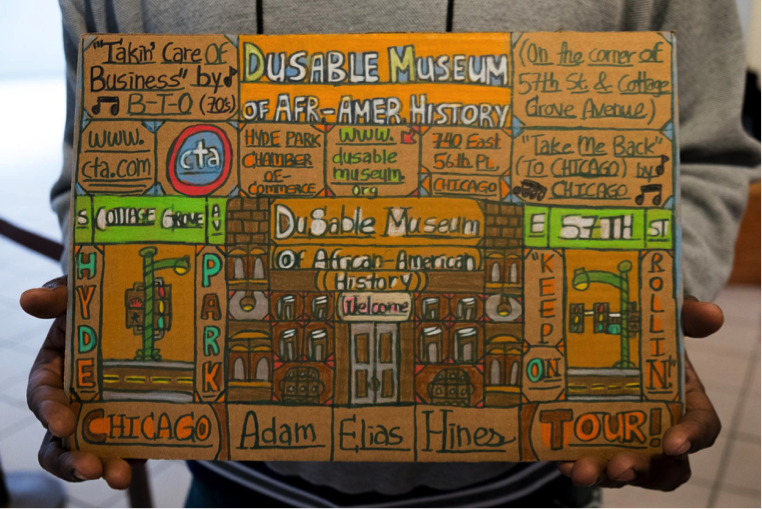 "Takin' Care Of
Business" by
B-T-O (70s)
DUSABLE MUSEUM
OF AFR-AMER. HISTORY
(On the corner of
57th St. & Cottage
Grove Avenue)
www.
cta.com
cta
HYDE PARK
CHAMBER
OF-
COMMERCE
www.
dusable
museum.
org
740 East
56th Pl.
CHICAGO
"Take Me Back"
(TO CHICAGO) by
CHICAGO
S COTTAGE GROVE AV
DuSable Museum
Of African-American
History
Welcome
E 57TH ST
HYDE
PARK
"KEEP
ON
ROLLIN'"
CHICAGO
Adam
Elias
Hines
TOUR!